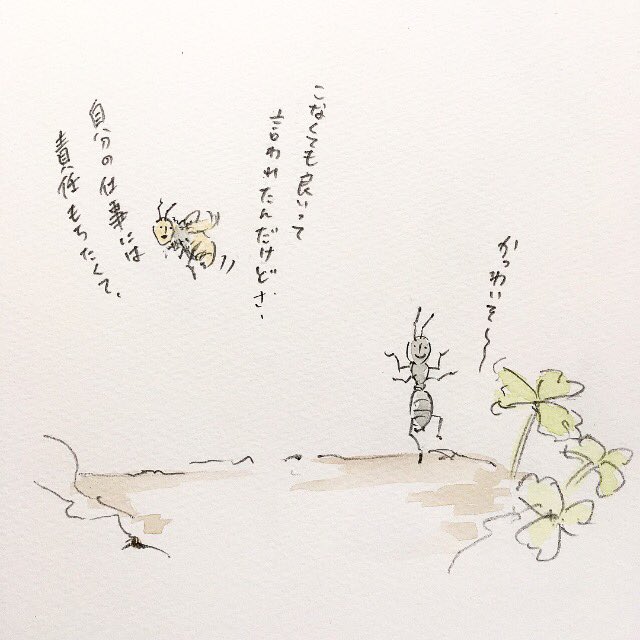 こなくても良いって
言われたんだけどさ、
自分の仕事には
責任もちたくて、
かっわいそ〜〜